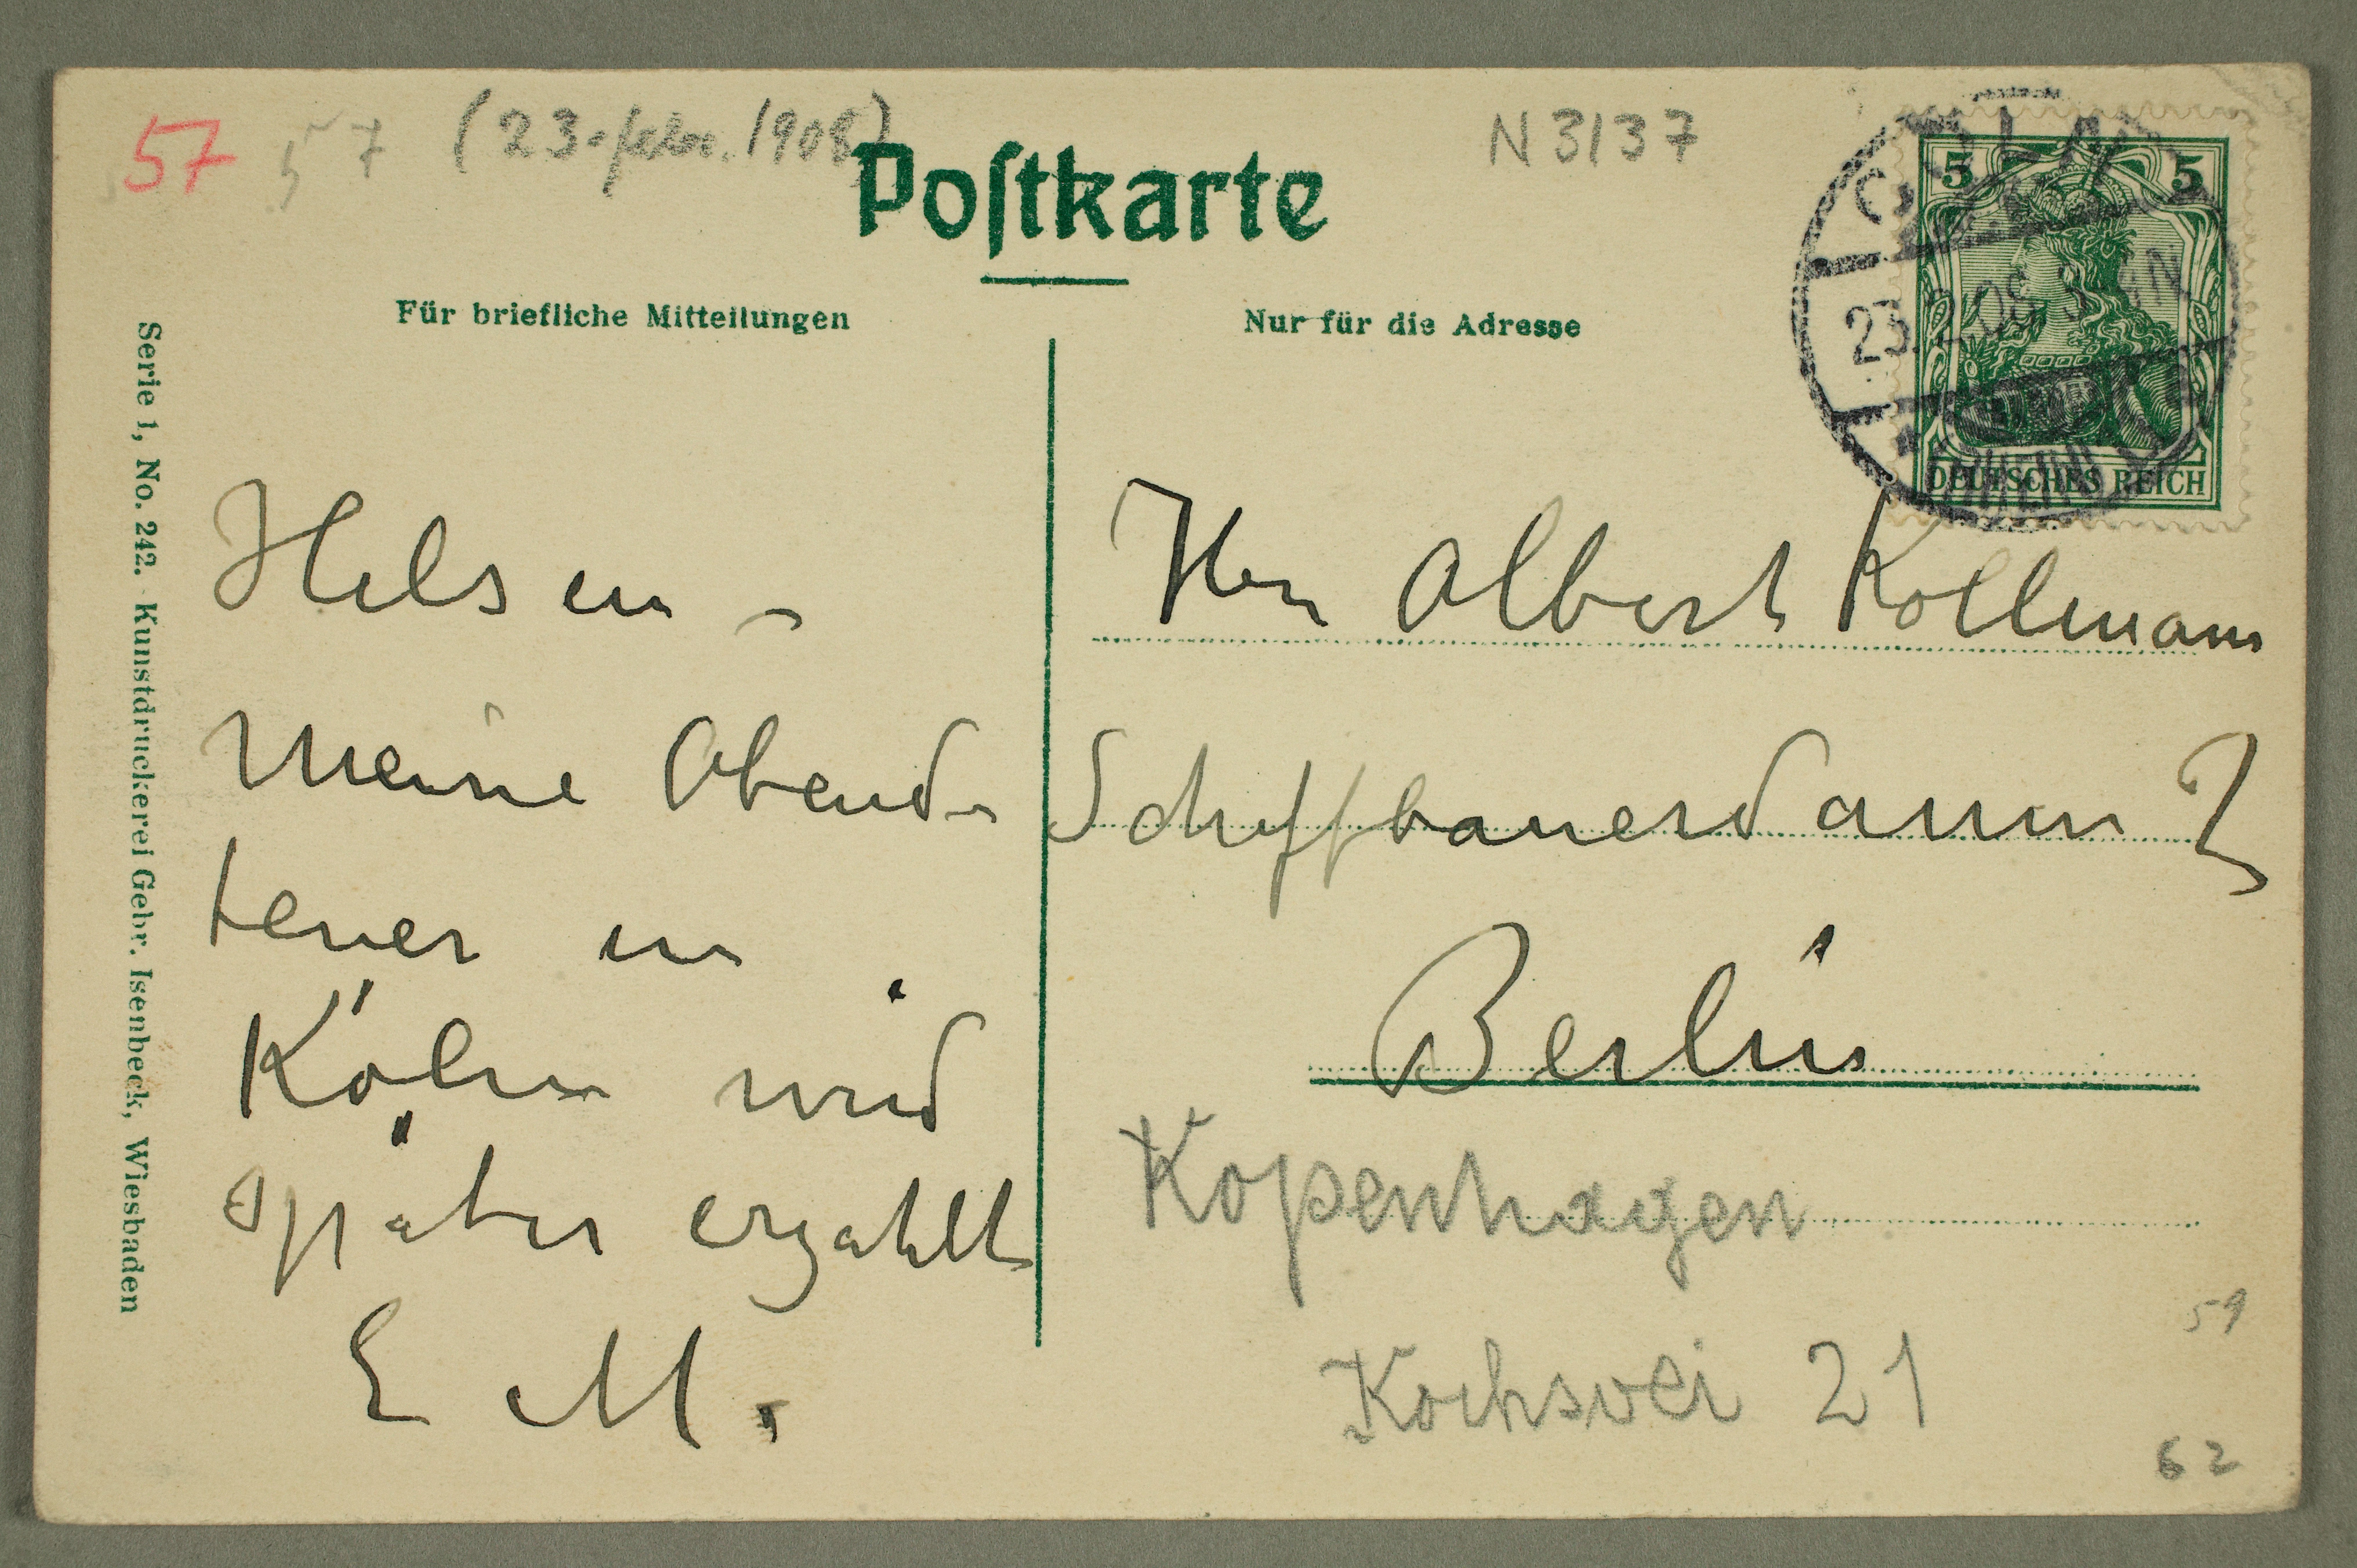 57 57 (23. febr. 1908) N 3137
Postkarte
Für briefliche Mitteilungen
Nur für die Adresse
5 5
CÖLN
23.2.08
DEUTSCHES REICH
Serie 1, No. 242. Kunstdruckerei Gebr. Isenbeck, Wiesbaden
Hilsen –
Meine Abend-
teuer in
Köln wird
später erzahlt
E M.
Herr Albert Kollmann
Schiffbauerdamm 2
Berlin
Kopenhagen
Kochsvei 21
59
62